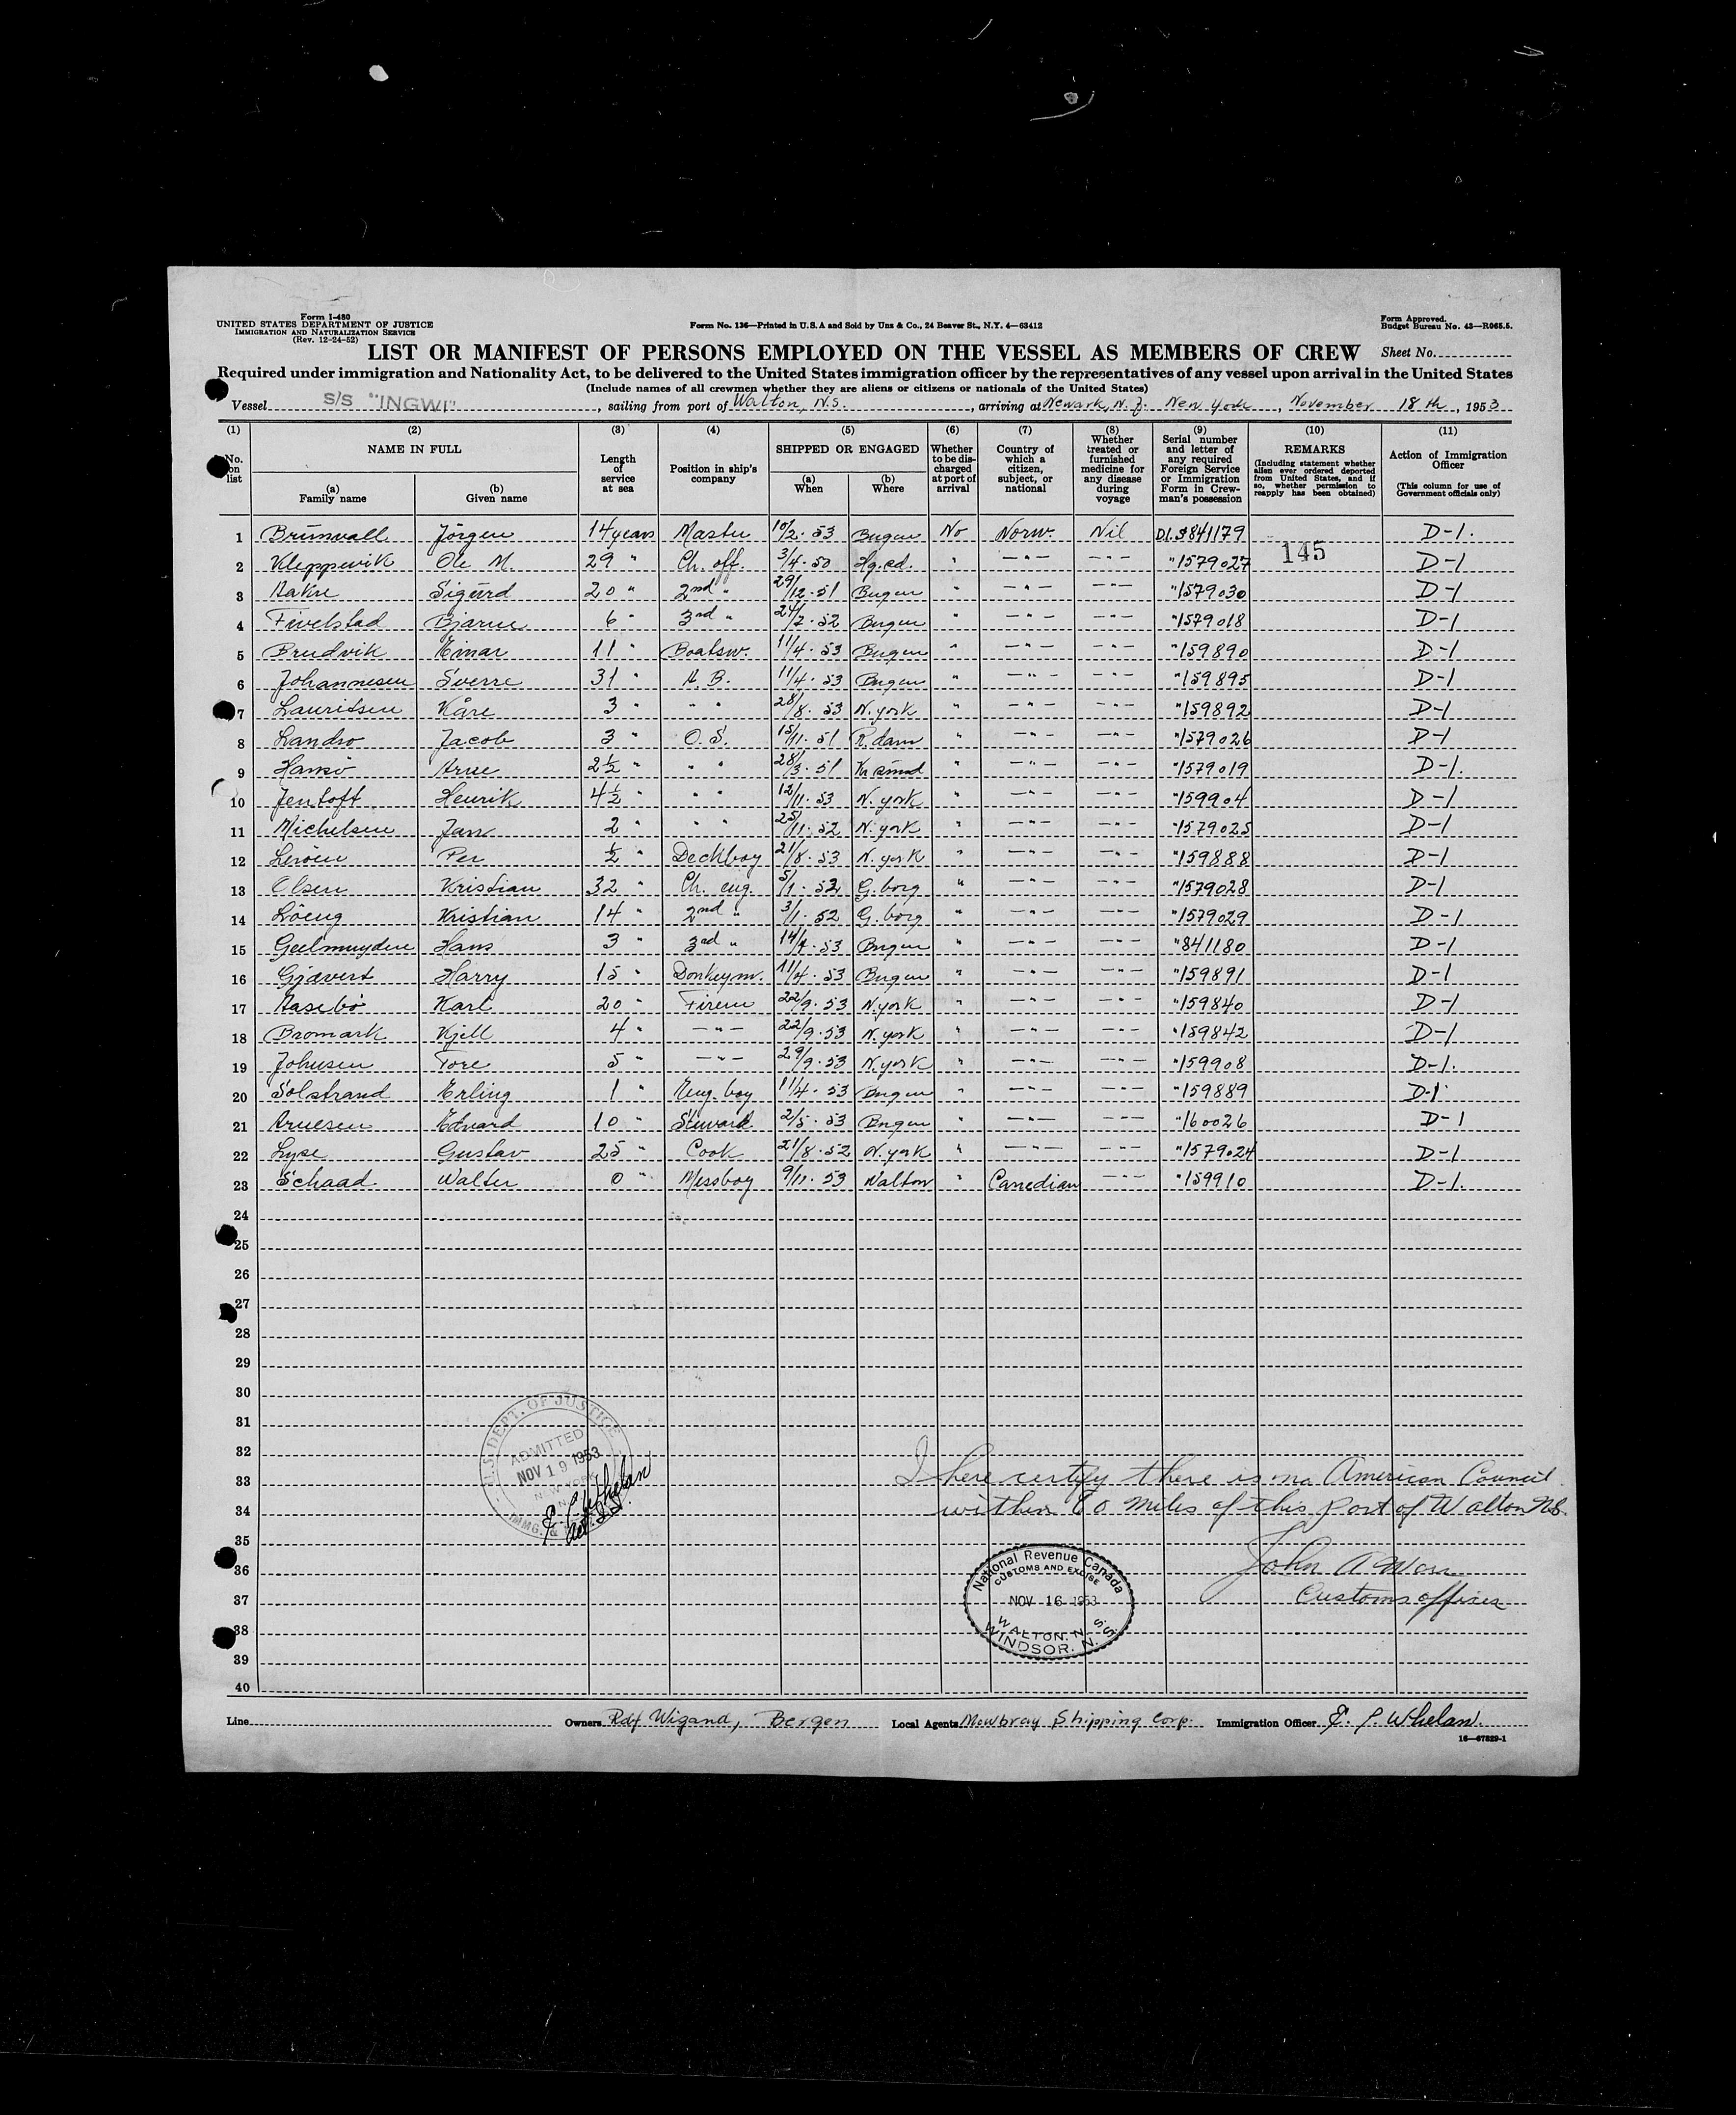 Form I-480
UNITED STATES DEPARTMENT OF JUSTICE
IMMIGRATION AND NATURALIZATION SERVICE
(Rev. 12-24-52)
Form No. 136—Printed in U.S.A and Sold by Unz & Co., 24 Beaver St., N.Y. 4—63412
Form Approved.
Budget Bureau No. 43—R065.5.
LIST OR MANIFEST OF PERSONS EMPLOYED ON THE VESSEL AS MEMBERS OF CREW Sheet No.
Required under immigration and Nationality Act, to be delivered to the United States immigration officer by the representatives of any vessel upon arrival in the United States
(Include names of all crewmen whether they are aliens or citizens or nationals of the United States)
Vessel S/S "INGWI", sailing from port of Walton, N.S., arriving at Newark, N.J. New York, November 18th, 1953
(1) No. on list
(2) NAME IN FULL (a) Family name (b) Given name
(3) Length of service at sea
(4) Position in ship's company
(5) SHIPPED OR ENGAGED (a) When (b) Where
(6) Whether to be discharged at port of arrival
(7) Country of which a citizen, subject, or national
(8) Whether treated or furnished medicine for any disease during voyage
(9) Serial number and letter of any required Foreign Service or Immigration Form in Crewman's possession
(10) REMARKS (Including statement whether alien ever ordered deported from United States, and if so, whether permission to reapply has been obtained)
(11) Action of Immigration Officer (This column for use of Government officials only)
1 Brunvall Jörgen 14 years Master 10/2.53 Bergen No Norw. Nil D1.9841179 D-1.
2 Kleppevik Ole M. 29 " Ch. off. 3/4.50 " —"— —"— "1579027 145 D-1
3 Sigurd 20 " 2nd " 29/12.51 Bergen " —"— —"— "1579030 D-1
4 Fivelstad Bjarne 6 " 3rd " 24/7.52 Bergen " —"— —"— "1579018 D-1
5 Brudvik Einar 11 " Boatsw. 11/4.53 Bergen " —"— —"— "159890 D-1
6 Johannesen Sverre 31 " A.B. 11/4.53 Bergen " —"— —"— "159895 D-1
7 Lauritsen Kåre 3 " " " 28/8.53 N.york " —"— —"— "159892 D-1
8 Landro Jacob 3 " O.S. 15/11.51 R.dam " —"— —"— "1579026 D-1
9 Hansö Arne 2½ " " " 28/3.51 Kr.sund " —"— —"— "1579019 D-1.
10 Jentoft Henrik 4½ " " " 12/11.53 N.york " —"— —"— "159904 D-1
11 Michelsen Jan 2 " " " 25/11.52 N.york " —"— —"— "1579025 D-1
12 Leröen Per ½ " Deckboy 21/8.53 N.york " —"— —"— "159888 D-1
13 Olsen Kristian 32 " Ch. eng. 5/1.52 G.borg " —"— —"— "1579028 D-1
14 Löeng Kristian 14 " 2nd " 3/1.52 G.borg " —"— —"— "1579029 D-1
15 Geelmuyden Hans 3 " 3rd " 14/7.53 Bergen " —"— —"— "841180 D-1
16 Gjævert Harry 15 " Donkeym. 11/4.53 Bergen " —"— —"— "159891 D-1
17 Aasebö Karl 20 " Firem 22/9.53 N.york " —"— —"— "159840 D-1
18 Bromark Kjell 4 " —"— 22/9.53 N.york " —"— —"— "159842 D-1
19 Johnsen Tore 5 " —"— 29/9.53 N.york " —"— —"— "159908 D-1.
20 Solstrand Erling 1 " Eng. boy 11/4.53 Bergen " —"— —"— "159889 D-1
21 Arnesen Edvard 10 " Steward 2/5.53 Bergen " —"— —"— "160026 D-1
22 Lyse Gustav 25 " Cook 21/8.52 N.york " —"— —"— "1579024 D-1
23 Schaad Walter 0 " Messboy 9/11.53 Walton " Canedian —"— "159910 D-1.
24
25
26
27
28
29
30
31
32
33
34
35
36
37
38
39
40
U.S. DEPT. OF JUSTICE
ADMITTED
NOV 19 1953
NEW YORK
IMMG. &
E. P. Whelan
I here certify there is no American Council
within 60 miles of this Port of Walton NS.
John A
Customs officer
National Revenue Canada
CUSTOMS AND EXCISE
NOV 16 1953
WALTON, N.S.
WINDSOR, N.S.
Line Owners Rdf Wigand, Bergen Local Agents Mowbray Shipping Corp. Immigration Officer E. P. Whelan.
16—67829-1